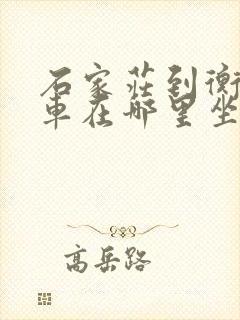 石家莊到衡
車在哪里坐
高岳路